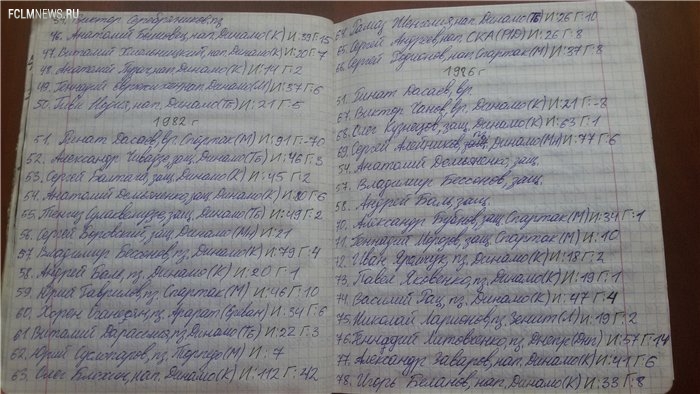 FCLMNEWS.RU
Виктор Серебряников, п
46. Анатолий Бышовец, нап. Динамо(К) И:39 Г:15
47. Виталий Хмельницкий, нап. Динамо(К) И:20 Г:7
48. Анатолий Пузач, нап. Динамо(К) И:14 Г:2
49. Геннадий Еврюжихин, нап. Динамо(М) И:37 Г:6
50. Гиви Нодия, нап. Динамо(Тб) И:21 Г:5
1982 г.
51. Ринат Дасаев, вр. Спартак(М) И:91 Г:-70
52. Александр Чивадзе, защ. Динамо(Тб) И:46 Г:3
53. Сергей Балтача, защ. Динамо(К) И:45 Г:2
54. Анатолий Демьяненко, защ. Динамо(К) И:80 Г:6
55. Тенгиз Сулаквелидзе, защ. Динамо(Тб) И:49 Г:2
56. Сергей Боровский, защ. Динамо(Мн) И:21
57. Владимир Бессонов, пз. Динамо(К) И:79 Г:4
58. Андрей Баль, пз. Динамо(К) И:20 Г:1
59. Юрий Гаврилов, пз. Спартак(М) И:46 Г:10
60. Хорен Оганесян, пз. Арарат(Ереван) И:34 Г:6
61. Виталий Дараселия, пз. Динамо(Тб) И:22 Г:3
62. Юрий Суслопаров, пз. Торпедо(М) И:7
63. Олег Блохин, нап. Динамо(К) И:112 Г:42
64. Рамаз Шенгелия, нап. Динамо(Тб) И:26 Г:10
65. Сергей Андреев, нап. СКА(РнД) И:26 Г:8
66. Сергей Родионов, нап. Спартак(М) И:37 Г:8
1986 г
51. Ринат Дасаев, вр.
67. Виктор Чанов, вр. Динамо(К) И:21 Г:-8
68. Олег Кузнецов, защ. Динамо(К) И:63 Г:1
69. Сергей Алейников, Динамо(Мн) И:77 Г:6
54. Анатолий Демьяненко, защ.
57. Владимир Бессонов, защ.
58. Андрей Баль, защ.
70. Александр Бубнов, защ. Спартак(М) И:34 Г:1
71. Геннадий Морозов, защ. Спартак(М) И:10
72. Иван Яремчук, пз. Динамо(К) И:18 Г:2
73. Павел Яковенко, пз. Динамо(К) И:19 Г:1
74. Василий Рац, пз. Динамо(К) И:47 Г:4
75. Николай Ларионов, пз. Зенит(Л) И:19 Г:2
76. Геннадий Литовченко, пз. Днепр(Днп) И:57 Г:14
77. Александр Заваров, нап. Динамо(К) И:41 Г:6
78. Игорь Беланов, нап. Динамо(К) И:33 Г:8